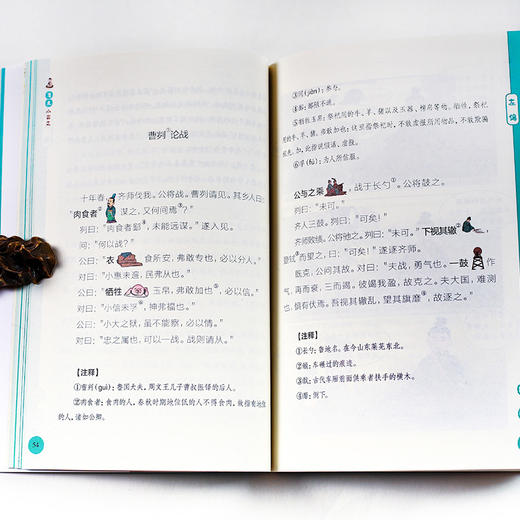 曹刿①论战
十年春，齐师伐我。公将战。曹刿请见。其乡人曰：
“肉食者②谋之，又何间焉③？”
刿曰：“肉食者鄙④，未能远谋。”遂入见。
问：“何以战？”
公曰：“衣食所安，弗敢专也，必以分人。”
对曰：“小惠未遍，民弗从也。”
公曰：“牺牲⑤玉帛，弗敢加也，必以信。”
对曰：“小信未孚⑥，神弗福也。”
公曰：“小大之狱，虽不能察，必以情。”
对曰：“忠之属也，可以一战。战则请从。”
【注释】
①曹刿(guì)：鲁国大夫，周文王儿子曹叔振铎的后人。
②肉食者：食肉的人，春秋时期地位低的人不得食肉，故指有地位
的人，诸如公卿。
54
③间(jiàn)：参与。
④鄙：鄙陋不通。
⑤牺牲玉帛：祭祀用的牛、羊、猪以及玉器、棉帛等物。牺牲，祭祀
用的牛、羊、猪。弗敢加也：这里指祭祀时，不敢虚报所用物品，不敢欺骗
⑥孚(fú)：为人所信服。
公与之乘，战于长勺①。公将鼓之。
刿曰：“未可。”
齐人三鼓。刿曰：“可矣！”
齐师败绩。公将驰之。刿曰：“未可。”下视其辙②，
登轼③而望之，曰：“可矣！”遂逐齐师。
既克，公问其故。对曰：“夫战，勇气也。一鼓
作气，再而衰，三而竭。彼竭我盈，故克之。夫大国，难测
也，惧有伏焉。吾视其辙乱，望其旗靡④，故逐之。”
【注释】
①长勺：鲁地名。在今山东莱芜东北。
②辙：车碾过的痕迹。
③轼：古代车厢前面供乘者扶手的横木。
④靡：倒下。